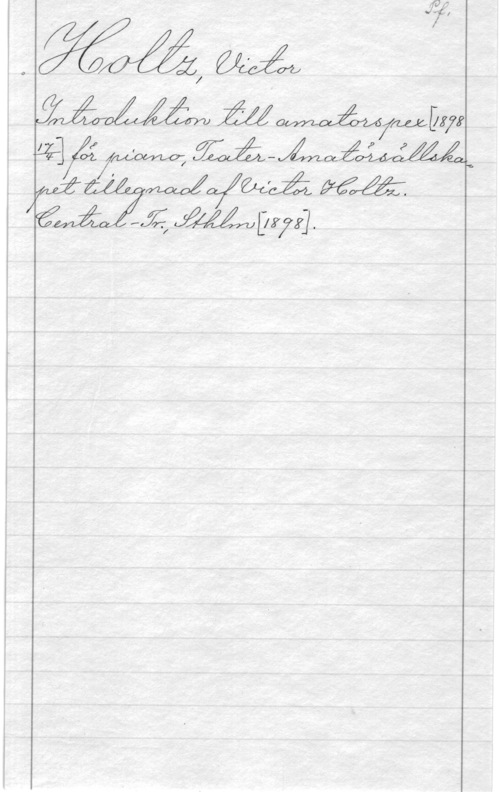 Pf.
Holtz, Victor
Introduktion till amatorspex [1898
17/4] för piano, Teater-Amatörsällska-
pet tillegnad af Victor Holtz.
Central-Tr., Sthlm [1898].